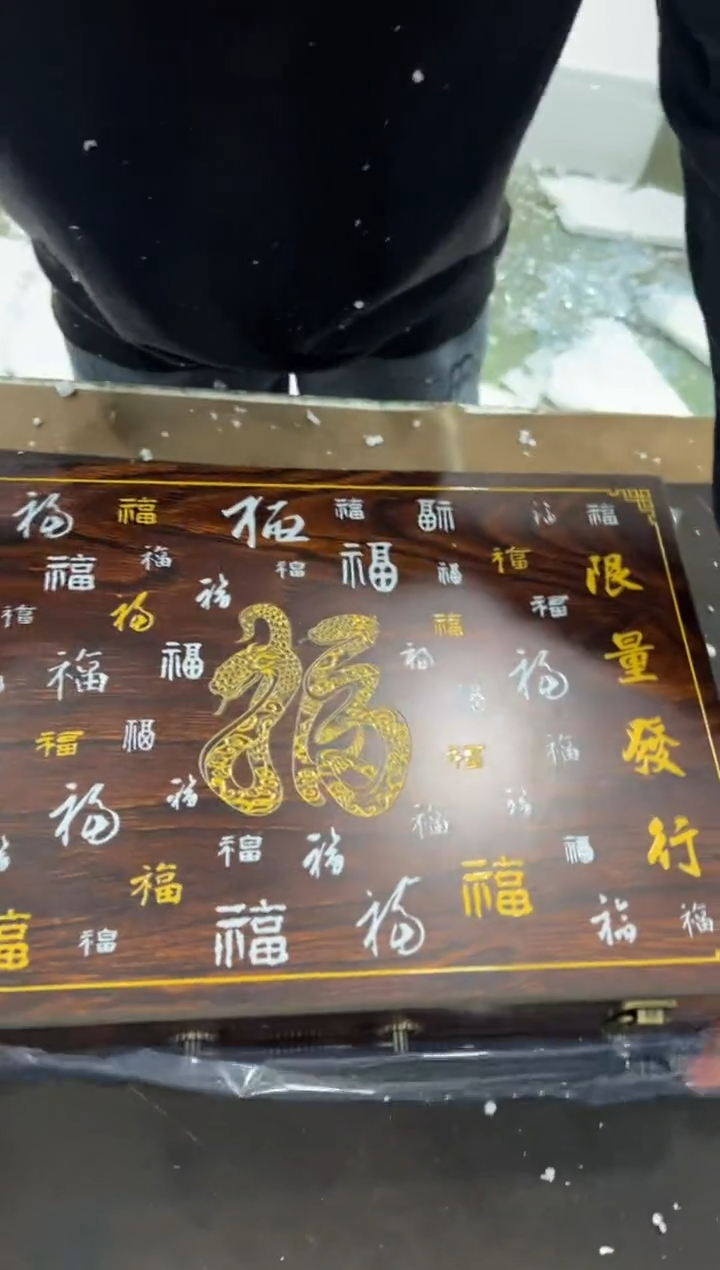 福 福 福 福 福 福
福 福 福 福 福 福
福 福 福 福 福
福 福 福 福
福
福 福 福 福
福 福 福 福
福 福 福
福 福
福 福 福 福 福 福
限量發行